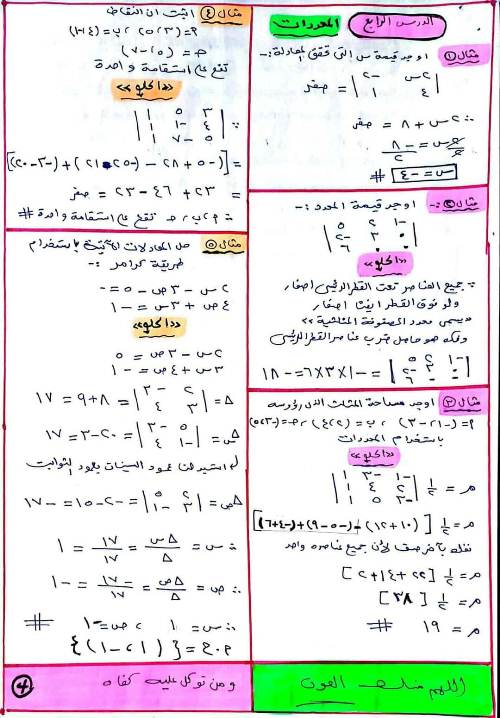 الدرس الرابع المحددات
مثال ١ اوجد قيمة س التى تحقق المعادلة:-
| ٢س -٢ |
| ٤ ١ | = صفر
∴ ٢س + ٨ = صفر
٢س/٢ = -٨/٢
س = -٤ #
مثال ٢ :- اوجد قيمة المحدد :-
| -١ ٢ ٥ |
| ٠ ٣ -٢ |
| ٠ ٠ ٦ |
«الحلو»
∵ جميع العناصر تحت القطر الرئيسى اصفار
ولو فوق القطر ايضا اصفار
«يسمى محدد المصفوفة المثلثية»
وفكه هو حاصل ضرب عناصر القطر الرئيسى
| -١ ٢ ٥ |
| ٠ ٣ -٢ |
| ٠ ٠ ٦ | = -١×٣×٦ = -١٨
مثال ٣ اوجد مساحة المثلث الذى رؤوسه
باستخدام المحددات
«الحلو»
م = ١/٢ | -١ -٣ ١ |
| ٢ ٤ ١ |
| -٣ ٥ ١ |
م = ١/٢ [(١٠+١٢) - (-٥-٩) + (-٤+٦)]
نفك بآخر صف لأن جميع عناصره واحد
م = ١/٢ [٢٢+١٤+٢]
م = ١/٢ [٣٨]
م = ١٩ #
اللهم منك العون
مثال ٤ اثبت ان النقاط
(٥،٣) ، ب = (٤،-١)
حـ = (٥،-٧)
تقع على استقامة واحدة
«الحلو»
∵ | ٣ ٥ ١ |
| ٤ -١ ١ |
| ٥ -٧ ١ |
= [(-٢٨+٥) - (-٢١-٢٥) + (-٣-٢٠)]
= -٢٣ + ٤٦ - ٢٣ = صفر
∴ ٩، ب، حـ تقع على استقامة واحدة #
مثال ٥ حل المعادلات الآتية باستخدام
طريقة كرامر :-
٢س - ٣ص - ٥ = ٠
٤ص + ٣س = -١
«الحلو»
٢س - ٣ص = ٥
٣س + ٤ص = -١
Δ = | ٢ -٣ |
| ٣ ٤ | = ٨+٩ = ١٧
Δس = | ٥ -٣ |
| -١ ٤ | = ٢٠-٣ = ١٧
استبدلنا عمود السينات بعمود الثوابت
Δص = | ٢ ٥ |
| ٣ -١ | = -٢-١٥ = -١٧
∴ س = Δس/Δ = ١٧/١٧ = ١
∴ ص = Δص/Δ = -١٧/١٧ = -١
∴ س = ١ ، ص = -١ #
م.ح = {(١، -١)}
ومن توكل عليه كفاه
٤